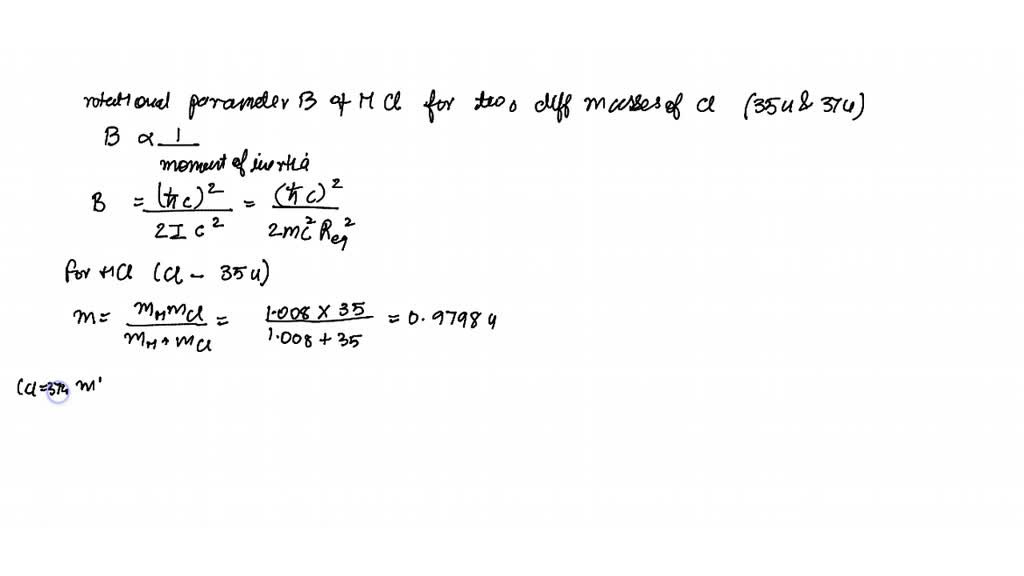 rotational parameter B of HCl for two diff masses of Cl (35u & 37u)
B ∝ 1 / moment of inertia
B = (ħc)² / 2Ic² = (ħc)² / 2mc²Req²
for HCl (Cl - 35u)
m = mHmCl / mH + mCl = 1.008 × 35 / 1.008 + 35 = 0.9798 u
(Cl = 37u m'